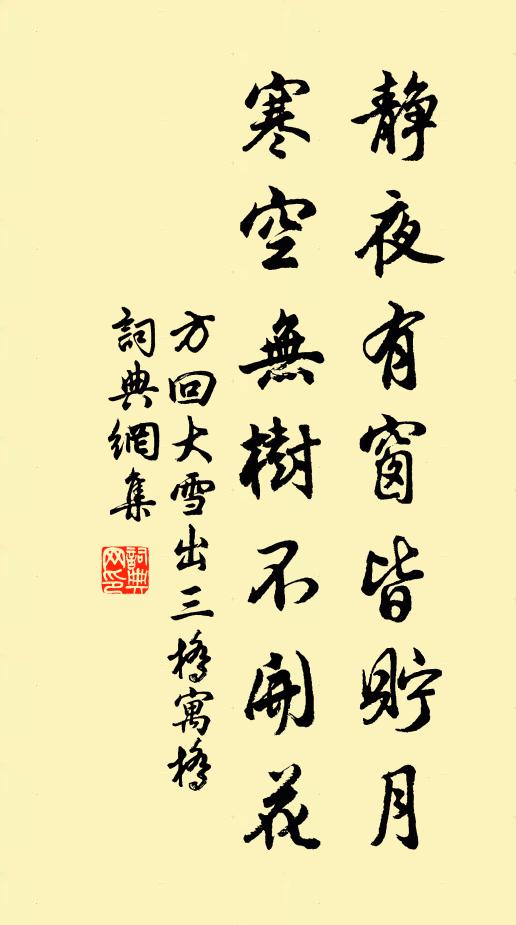 靜夜有窗皆貯月
寒空無樹不開花
方回大雪出三橋寓橋
詞典網集
詞典网印